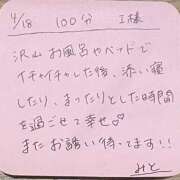 4/18 100分 I様
沢山お風呂やベッドで
イチャイチャした後、添い寝
したり、まったりとした時間
を過ごせて幸せ♡♡
またお誘い待ってます!!
みと